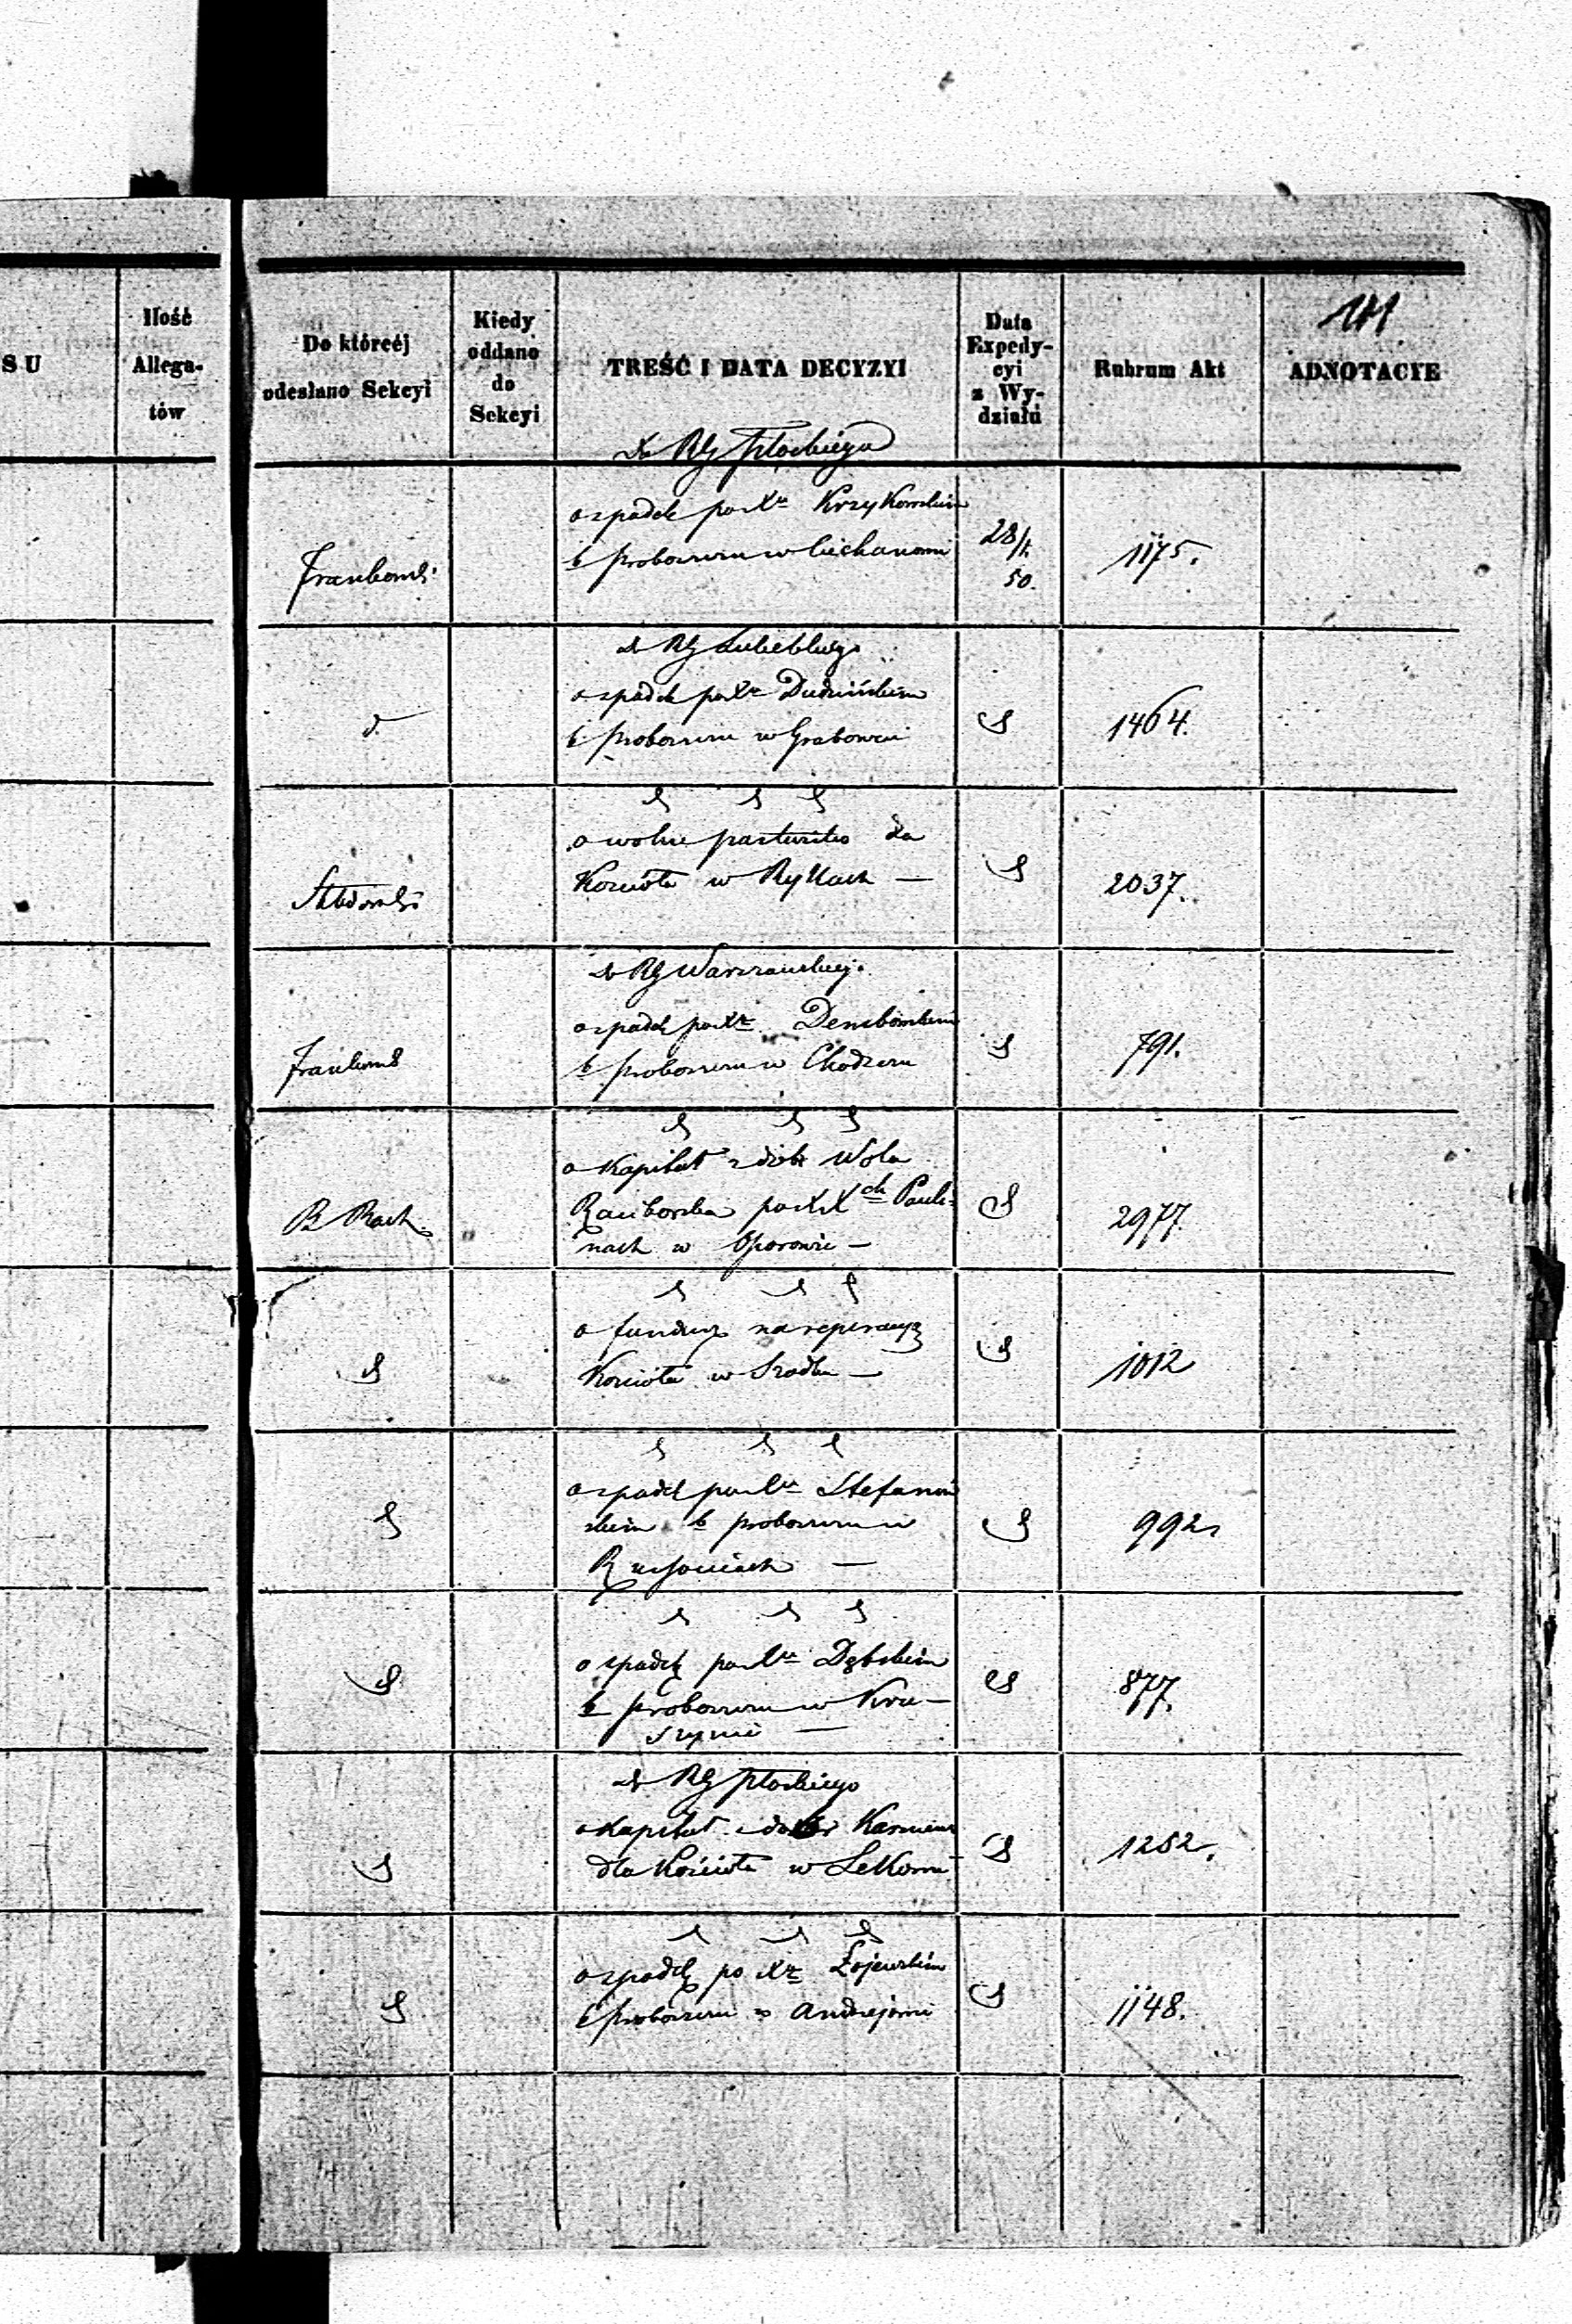 SU
Ilość
Allega-
tów
Do któreéj
odesłano Sekcyi
Kiedy
oddano
do
Sekcyi
TREŚĆ I DATA DECYZYI
Data
Expedy-
cyi
z Wy-
działu
Rubrum Akt
141
ADNOTACYE
do RG Płockiego
o spadek po Xu Krzykowskim
b proboszczu w Ciechanowie
28/
50.
1175.
do RG Lubelskiego
o spadek po Xu Dudzińskim
b proboszczu w Grabowcu
d.
1464.
o wolne pastwisko dla
Kościoła w Rykach —
2037.
do RG Warszawskiego
o spadek po Xu Dembowskim
b proboszczu w Chodczu
791.
o Kapitał z dóbr Wola
Raciborska po XXch Pauli-
nach w Oporowie —
2977.
o fundusz na reperacyą
Kościoła w Szadku —
1012
o spadek po Xu Stefanow
skim b proboszczu w
992
o spadek po Xu Dębskim
b proboszczu w Kru-
szynie —
877.
do RG Płockiego
o Kapitał z dóbr
dla Kościoła w Lekowie
1252.
o spadek po Xu Łojewskim
b proboszczu w Andrzejewie
1148.